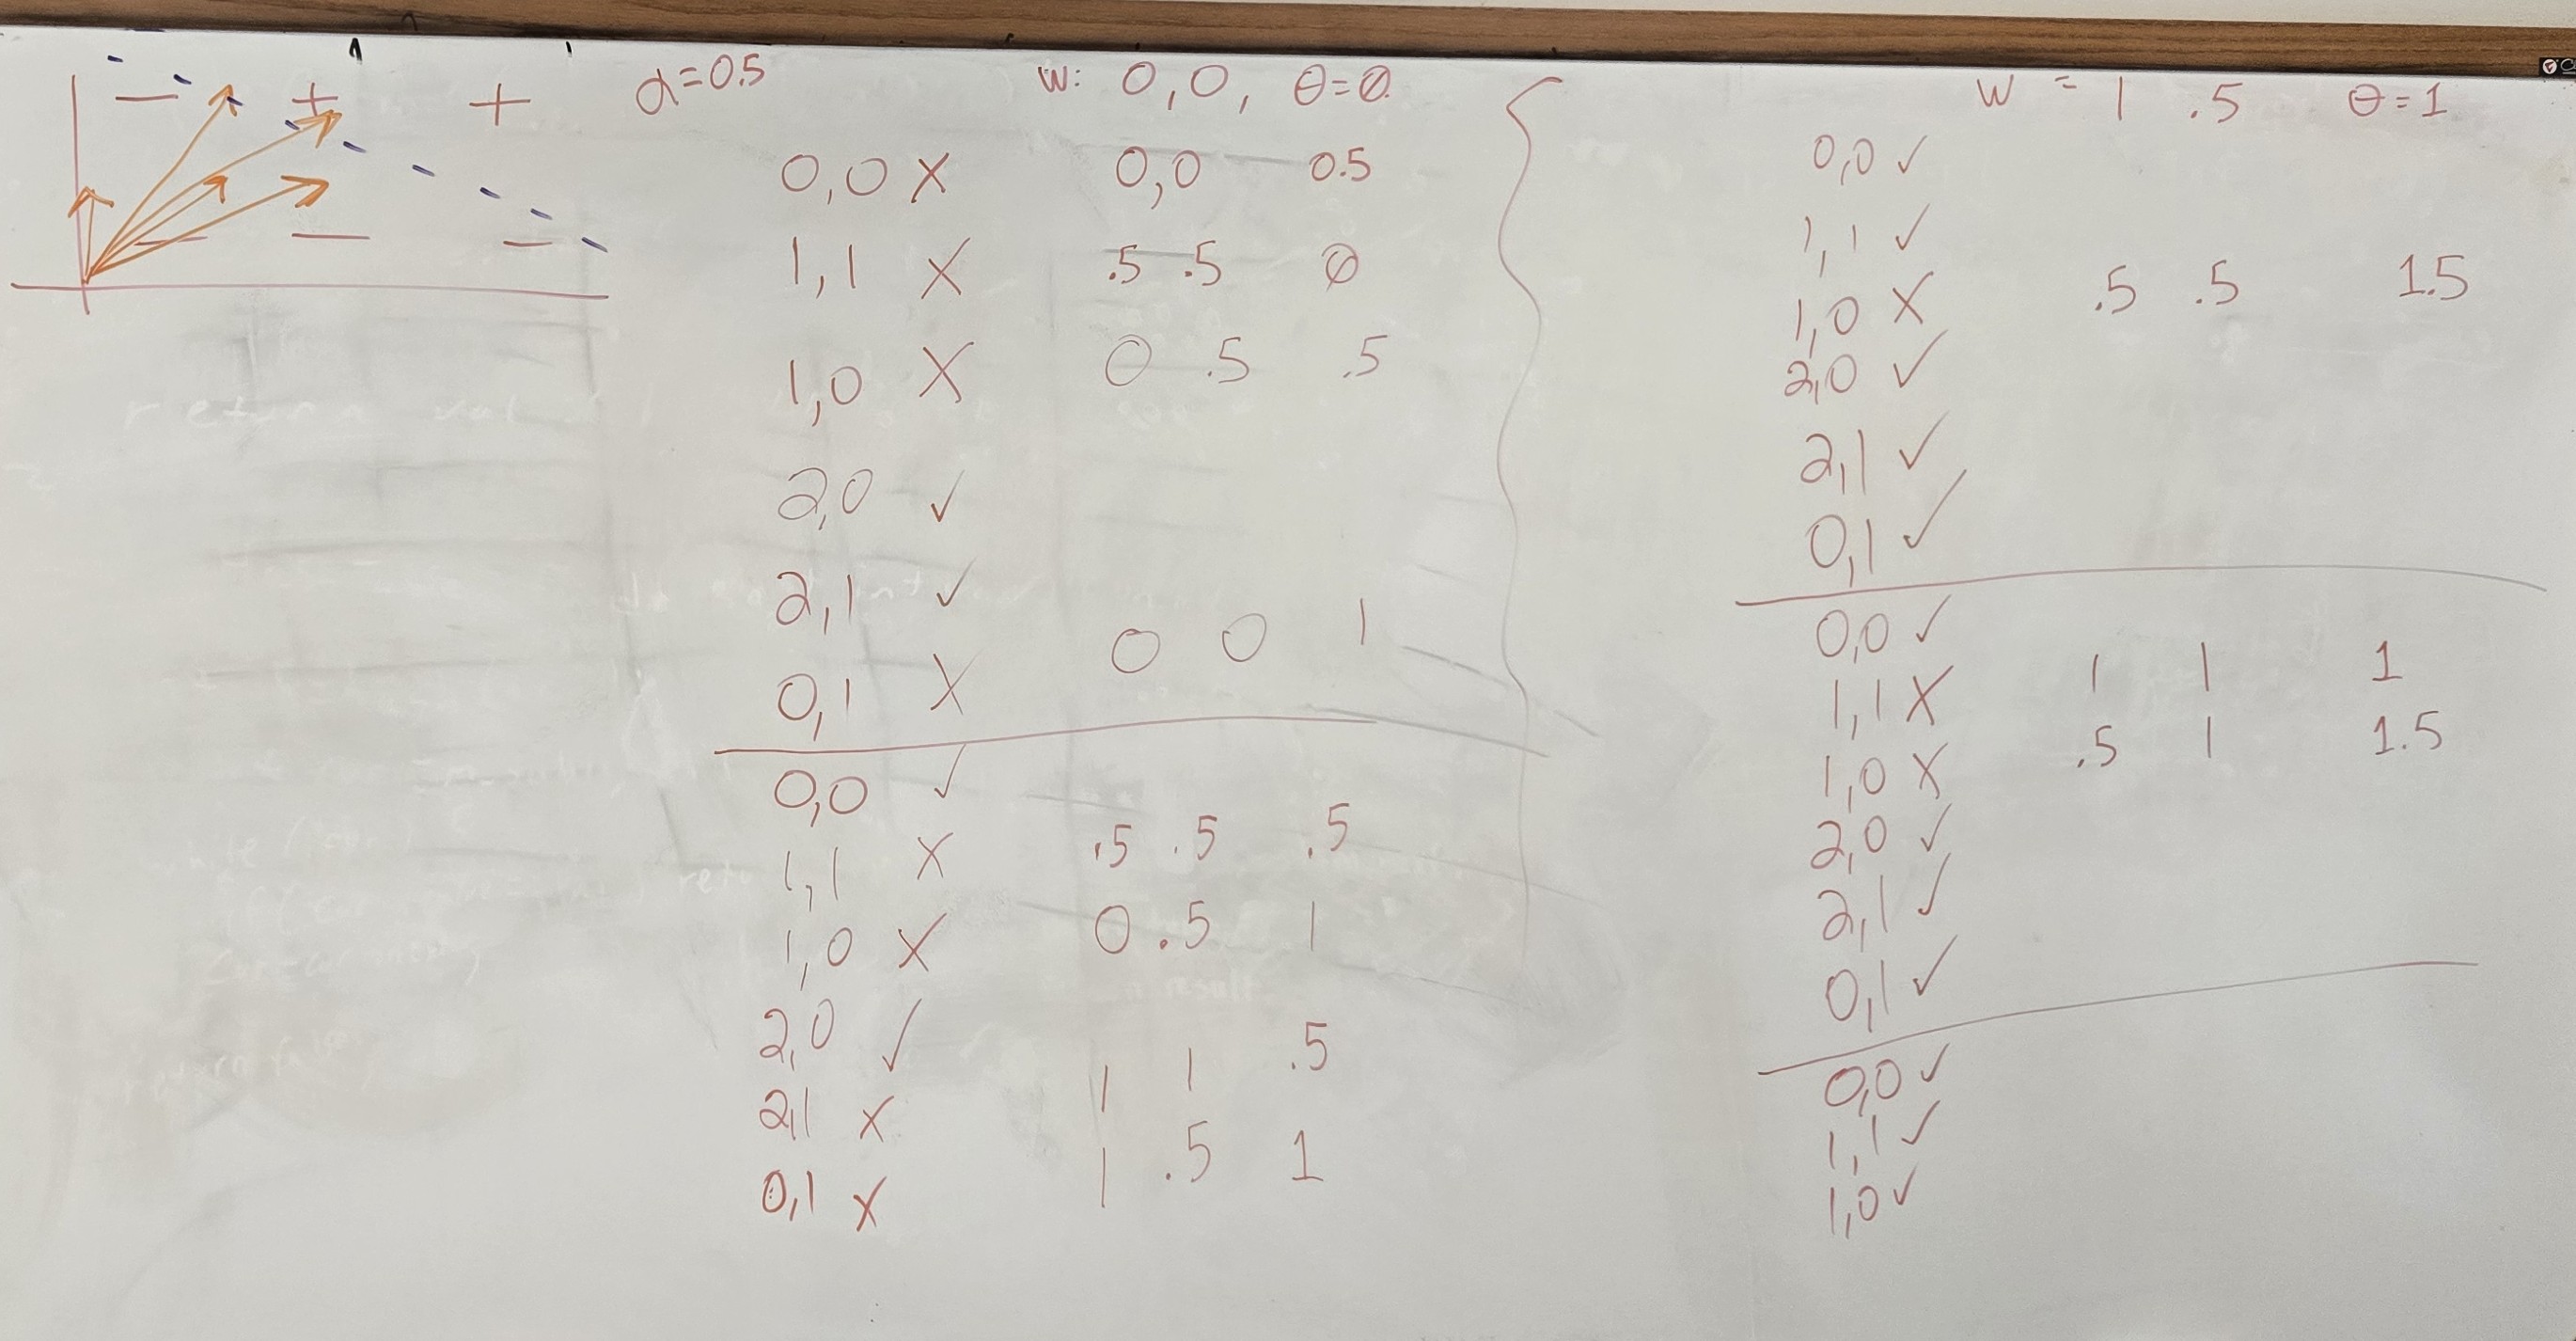 − + + α=0.5 w: 0,0, θ=0
− − −
0,0 X 0,0 0.5
1,1 X .5 .5 0
1,0 X 0 .5 .5
2,0 ✓
2,1 ✓
0,1 X 0 0 1
0,0 ✓
1,1 X .5 .5 .5
1,0 X 0 .5 1
2,0 ✓
2,1 X 1 1 .5
0,1 X 1 .5 1
w = 1 .5 θ=1
0,0 ✓
1,1 ✓
1,0 X .5 .5 1.5
2,0 ✓
2,1 ✓
0,1 ✓
0,0 ✓
1,1 X 1 1 1
1,0 X .5 1 1.5
2,0 ✓
2,1 ✓
0,1 ✓
0,0 ✓
1,1 ✓
1,0 ✓
return val